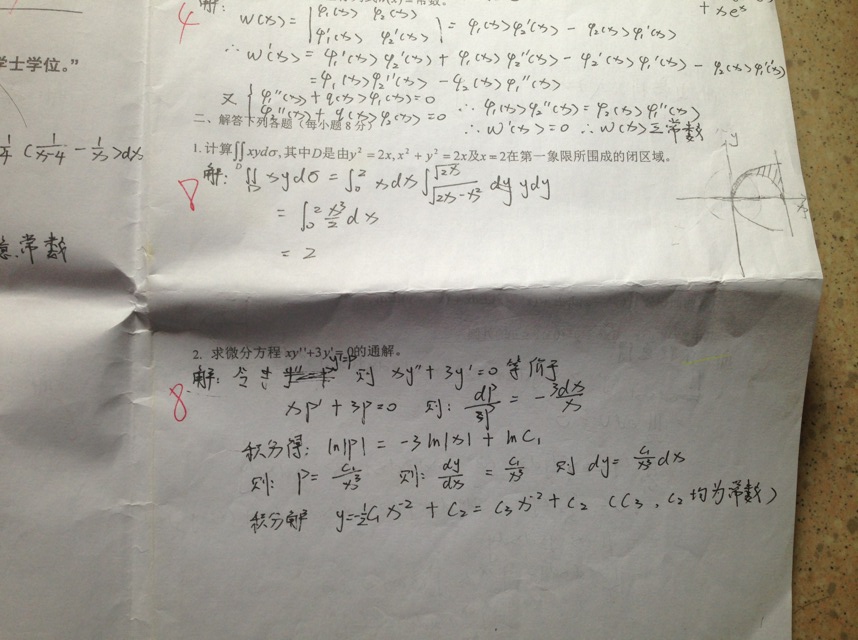 4
解: W(x) = | φ₁(x) φ₂(x) ; φ₁'(x) φ₂'(x) | = φ₁(x)φ₂'(x) - φ₂(x)φ₁'(x)
+ xeˣ
∴ W'(x) = φ₁'(x)φ₂'(x) + φ₁(x)φ₂''(x) - φ₂'(x)φ₁'(x) - φ₂(x)φ₁''(x)
= φ₁(x)φ₂''(x) - φ₂(x)φ₁''(x)
又 { φ₁''(x) + q(x)φ₁(x) = 0 ∴ φ₁(x)φ₂''(x) = φ₂(x)φ₁''(x)
φ₂''(x) + q(x)φ₂(x) = 0 ∴ W'(x) = 0 ∴ W(x) 三 常数
学士学位。”
1/4 (1/(x-4) - 1/x)dx
意常数
二、解答下列各题(每小题8分)
1. 计算∬_D xydσ, 其中D是由y² = 2x, x² + y² = 2x及x = 2在第一象限所围成的闭区域。
8
解: ∬_D xydσ = ∫₀² xdx ∫_{√(2x-x²)}^{√2x} ydy
= ∫₀² x³/2 dx
= 2
y
x
2. 求微分方程 xy''+3y'=0的通解。
8
解: 令 y'=P 则 xy''+3y'=0 等价于
xP' + 3P = 0 则: dP/3P = - 3dx/x
积分得: ln|P| = -3ln|x| + lnC₁
则: P = C₁/x³ 则: dy/dx = C₁/x³ 则 dy = C₁/x³ dx
积分解 y = -½C₁x⁻² + C₂ = C₃x⁻² + C₂ (C₃, C₂均为常数)